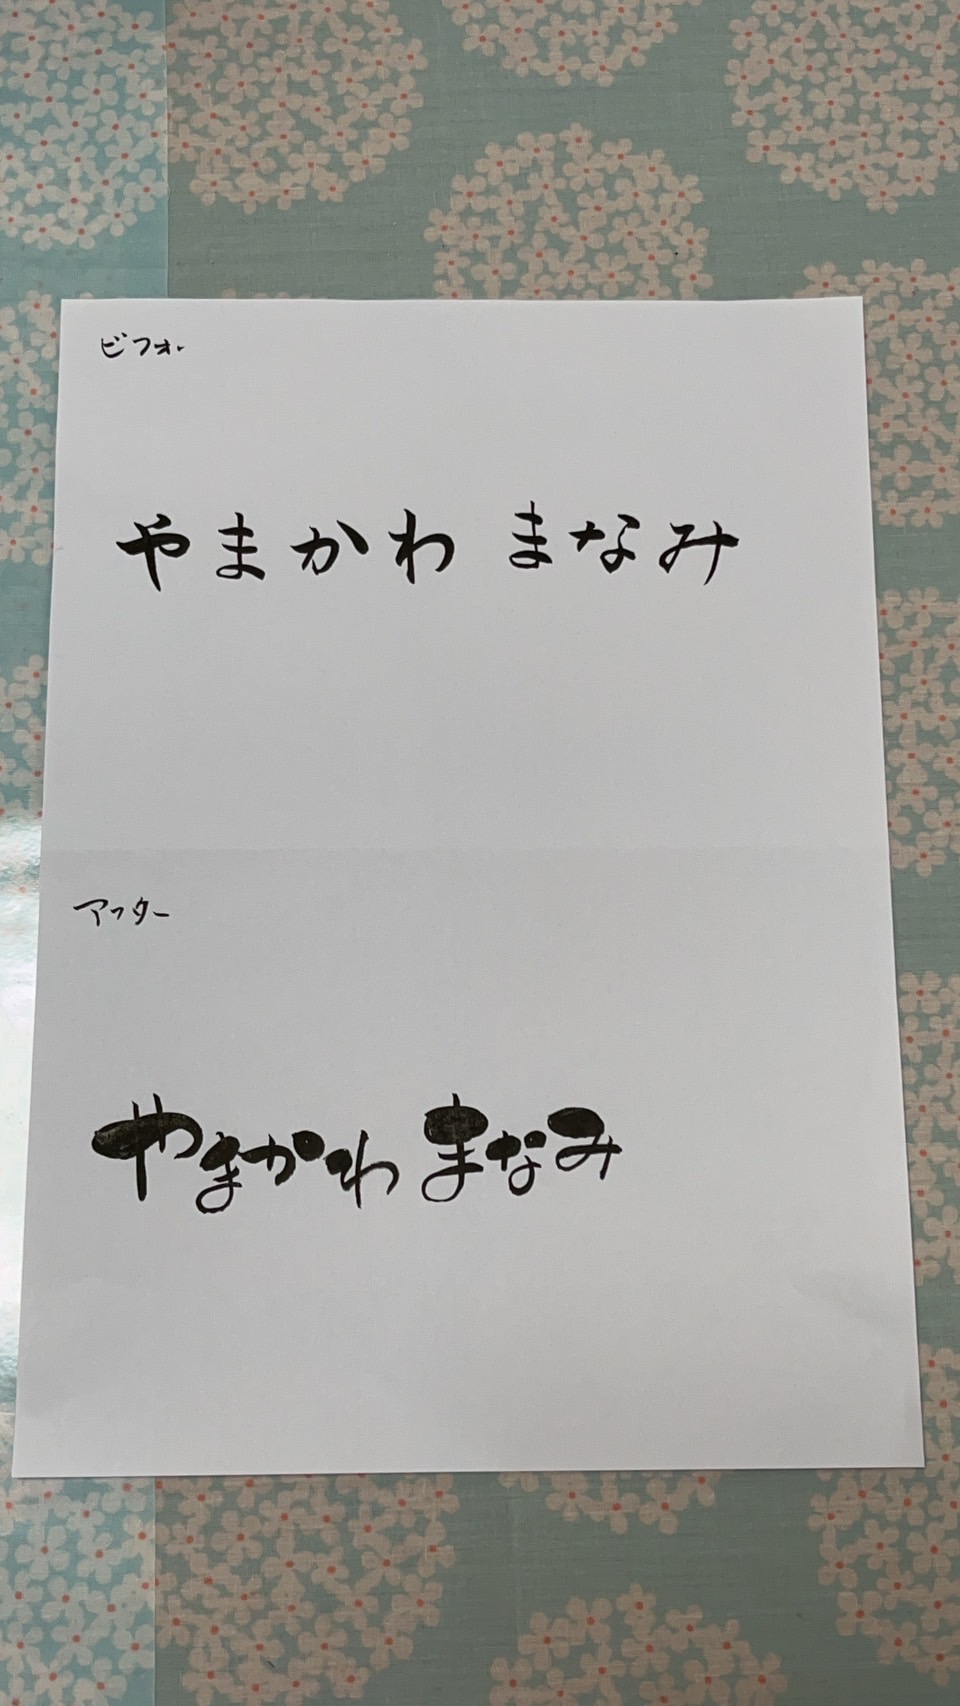 ビフォー
やまかわ まなみ
アフター
やまかわ まなみ